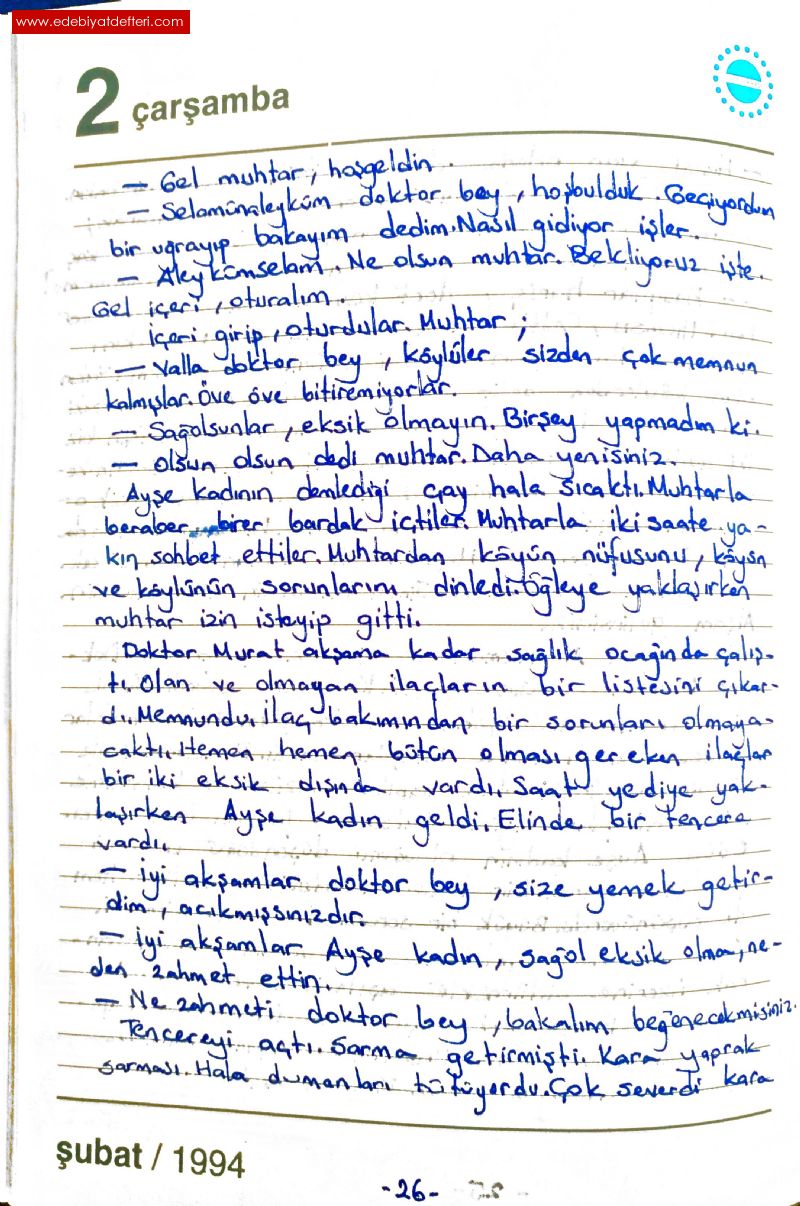 www.edebiyatdefteri.com
2 çarşamba
— Gel muhtar, hoşgeldin.
— Selamünaleyküm doktor bey, hoşbulduk. Geçiyordum
bir uğrayıp bakayım dedim. Nasıl gidiyor işler.
— Aleykümselam. Ne olsun muhtar. Bekliyoruz işte.
Gel içeri, oturalım.
İçeri girip, oturdular. Muhtar;
— Valla doktor bey, köylüler sizden çok memnun
kalmışlar. Öve öve bitiremiyorlar.
— Sağolsunlar, eksik olmayın. Birşey yapmadım ki.
— Olsun olsun dedi muhtar. Daha yenisiniz.
Ayşe kadının demlediği çay hala sıcaktı. Muhtarla
beraber birer bardak içtiler. Muhtarla iki saate ya-
kın sohbet ettiler. Muhtardan köyün nüfusunu, köyün
ve köylünün sorunlarını dinledi. Öğleye yaklaşırken
muhtar izin isteyip gitti.
Doktor Murat akşama kadar sağlık ocağında çalış-
tı. Olan ve olmayan ilaçların bir listesini çıkar-
dı. Memnundu, ilaç bakımından bir sorunları olmaya-
caktı. Hemen hemen bütün olması gereken ilaçlar
bir iki eksik dışında vardı. Saat yediye yak-
laşırken Ayşe kadın geldi. Elinde bir tencere
vardı.
— İyi akşamlar doktor bey, size yemek getir-
dim, acıkmışsınızdır.
— İyi akşamlar Ayşe kadın, sağol eksik olma, ne-
den zahmet ettin.
— Ne zahmeti doktor bey, bakalım beğenecekmisiniz.
Tencereyi açtı. Sarma getirmişti. Kara yaprak
sarması. Hala dumanları tütüyordu. Çok severdi kara
şubat / 1994
-26-